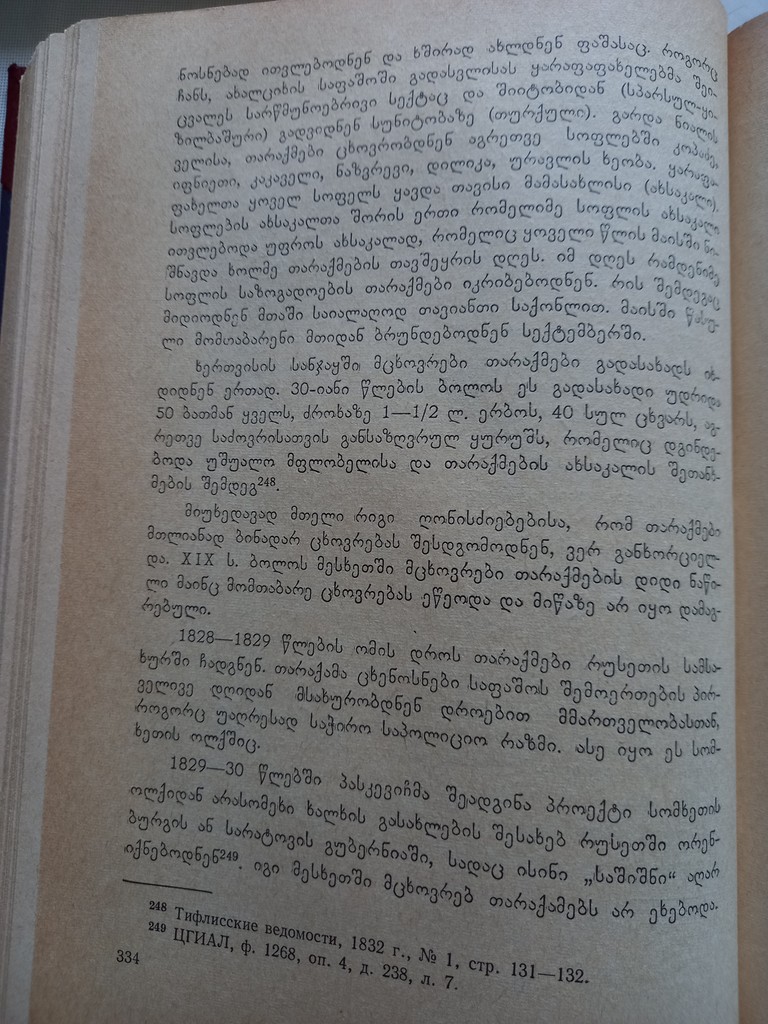 ნოსნებად ითვლებოდნენ და ხშირად ახლდნენ ფაშასაც. როგორც
ჩანს, ახალციხის საფაშოში გადასვლისას ყარაფაფახელებმა შეი-
ცვალეს სარწმუნოებრივი სექტაც და შიიტობიდან (სპარსულ-ყი-
ზილბაშური) გადვიდნენ სუნიტობაზე (თურქული). გარდა ნიალის
ველისა, თარაქმები ცხოვრობდნენ აგრეთვე სოფლებში კოპაძე,
იფნიეთი, კაკაველი, ნაზვრევი, დილიკა, ურავლის ხეობა. ყარაფა-
ფახელთა ყოველ სოფელს ყავდა თავისი მამასახლისი (ახსაკალი).
სოფლების ახსაკალთა შორის ერთი რომელიმე სოფლის ახსაკალი
ითვლებოდა უფროს ახსაკალად, რომელიც ყოველი წლის მაისში ნი-
შნავდა ხოლმე თარაქმების თავშეყრის დღეს. იმ დღეს რამდენიმე
სოფლის საზოგადოების თარაქმები იკრიბებოდნენ. რის შემდეგაც
მიდიოდნენ მთაში საიალაღოდ თავიანთი საქონლით. მაისში წასუ-
ლი მომთაბარენი მთიდან ბრუნდებოდნენ სექტემბერში.
ხერთვისის სანჯაყში მცხოვრები თარაქმები გადასახადს იხ-
დიდნენ ერთად. 30-იანი წლების ბოლოს ეს გადასახადი უდრიდა
50 ბათმან ყველს, ძროხაზე 1—1/2 ლ. ერბოს, 40 სულ ცხვარს, აგ-
რეთვე საძოვრისათვის განსაზღვრულ ყურუშს, რომელიც დგინდე-
ბოდა უშუალო მფლობელისა და თარაქმების ახსაკალის შეთანხ-
მების შემდეგ²⁴⁸.
მიუხედავად მთელი რიგი ღონისძიებებისა, რომ თარაქმები
მთლიანად ბინადარ ცხოვრებას შესდგომოდნენ, ვერ განხორციელ-
და. XIX ს. ბოლოს მესხეთში მცხოვრები თარაქმების დიდი ნაწი-
ლი მაინც მომთაბარე ცხოვრებას ეწეოდა და მიწაზე არ იყო დამაგ-
რებული.
1828—1829 წლების ომის დროს თარაქმები რუსეთის სამსა-
ხურში ჩადგნენ. თარაქამა ცხენოსნები საფაშოს შემოერთების პირ-
ველივე დღიდან მსახურობდნენ დროებით მმართველობასთან,
როგორც უაღრესად საჭირო საპოლიციო რაზმი. ასე იყო ეს სომ-
ხეთის ოლქშიც.
1829—30 წლებში პასკევიჩმა შეადგინა პროექტი სომხეთის
ოლქიდან არასომეხი ხალხის გასახლების შესახებ რუსეთში ორენ-
ბურგის ან სარატოვის გუბერნიაში, სადაც ისინი „საშიშნი“ აღარ
იქნებოდნენ²⁴⁹. იგი მესხეთში მცხოვრებ თარაქამებს არ ეხებოდა.
²⁴⁸ Тифлисские ведомости, 1832 г., № 1, стр. 131—132.
²⁴⁹ ЦГИАЛ, ф. 1268, оп. 4, д. 238, л. 7.
334